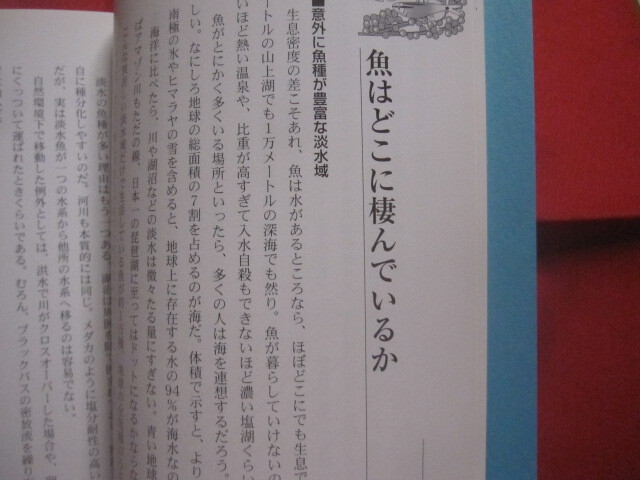 魚はどこに棲んでいるか
■意外に魚種が豊富な淡水域
生息密度の差こそあれ、魚は水があるところなら、ほぼどこにでも生息で
ートルの山上湖でも1万メートルの深海でも然り。魚が暮らしていけないの
いほど熱い温泉や、比重が高すぎて入水自殺もできないほど濃い塩湖くらい
魚がとにかく多くいる場所といったら、多くの人は海を連想するだろう。
しい。なにしろ地球の総面積の7割を占めるのが海だ。体積で示すと、より
南極の氷やヒマラヤの雪を含めると、地球上に存在する水の94%が海水なの
海洋に比べたら、川や湖沼などの淡水は微々たる量にすぎない。青い地球
ばアマゾン川もただの線、日本一の琵琶湖に至ってはドットになるかならな
淡水の魚種が多い理由はもう一つある。
自に種分化しやすいのだ。河川も本質的には同じ。メダカのように塩分耐性の高い
だが、実は淡水魚が一つの水系から他所の水系へ移るのは容易でない。
自然環境下で移動した例外としては、洪水で川がクロスオーバーした場合や、
にくっついて運ばれたときくらいである。むろん、ブラックバスの密放流を繰り